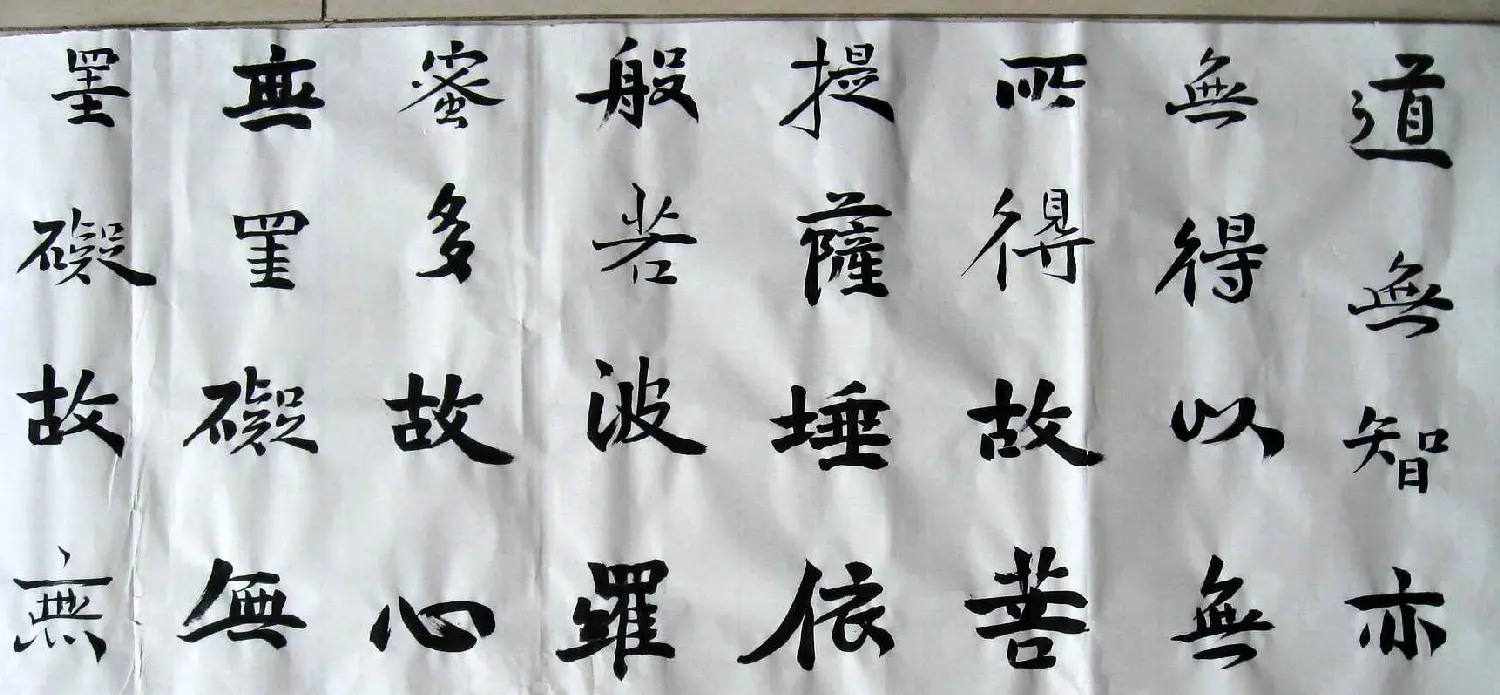 道無智亦
無得以無
所得故菩
提薩埵依
般若波羅
蜜多故心
無罣礙無
罣礙故無